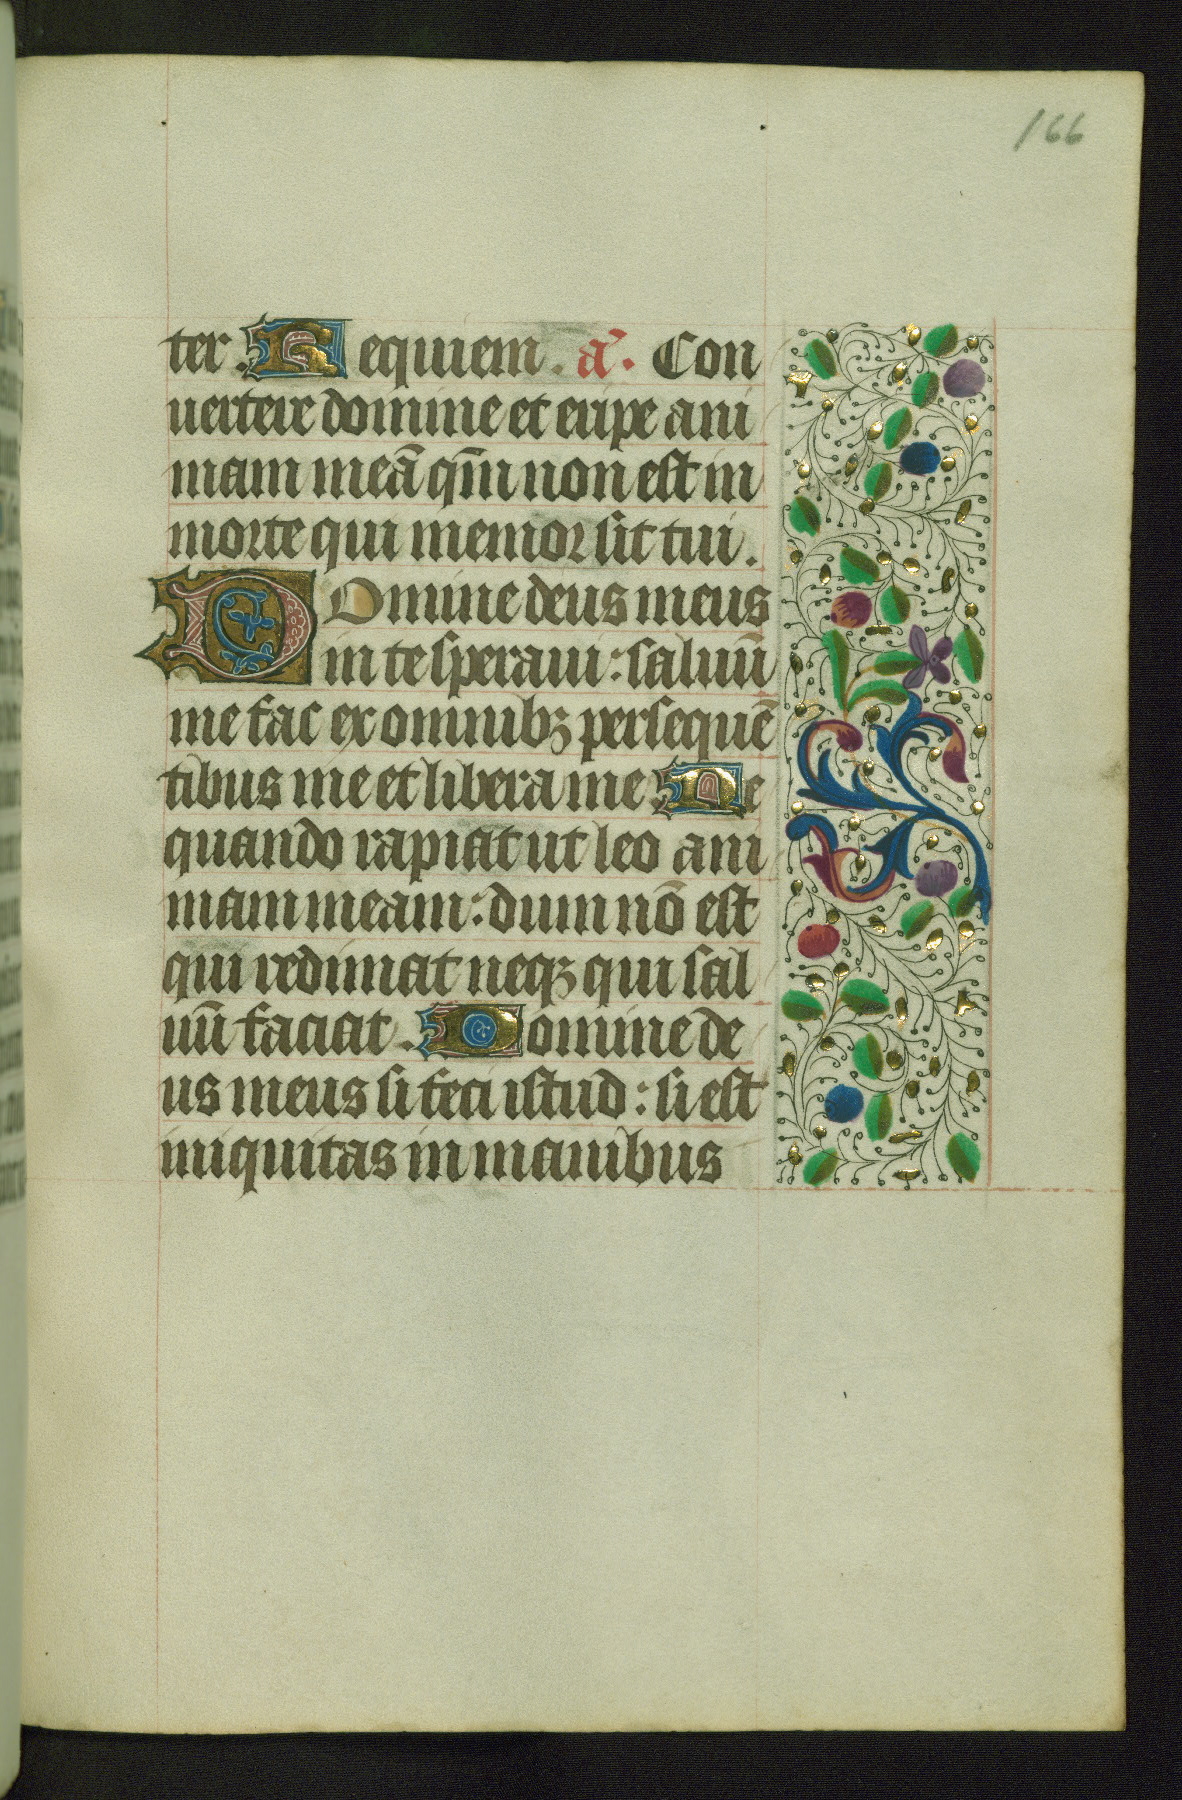 166
ter. Requiem. a̾. Con
uertere domine et eripe ani
mam meā qm̄ non est in
morte qui memor sit tui.
Domine deus meus
in te speraui: saluū
me fac ex omnibꝫ persequē
tibus me et libera me. Ne
quando rapiat ut leo ani
mam meam: dum nō est
qui redimat neqꝫ qui sal
uū faciat. Domine de
us meus si feci istud: si est
iniquitas in manibus